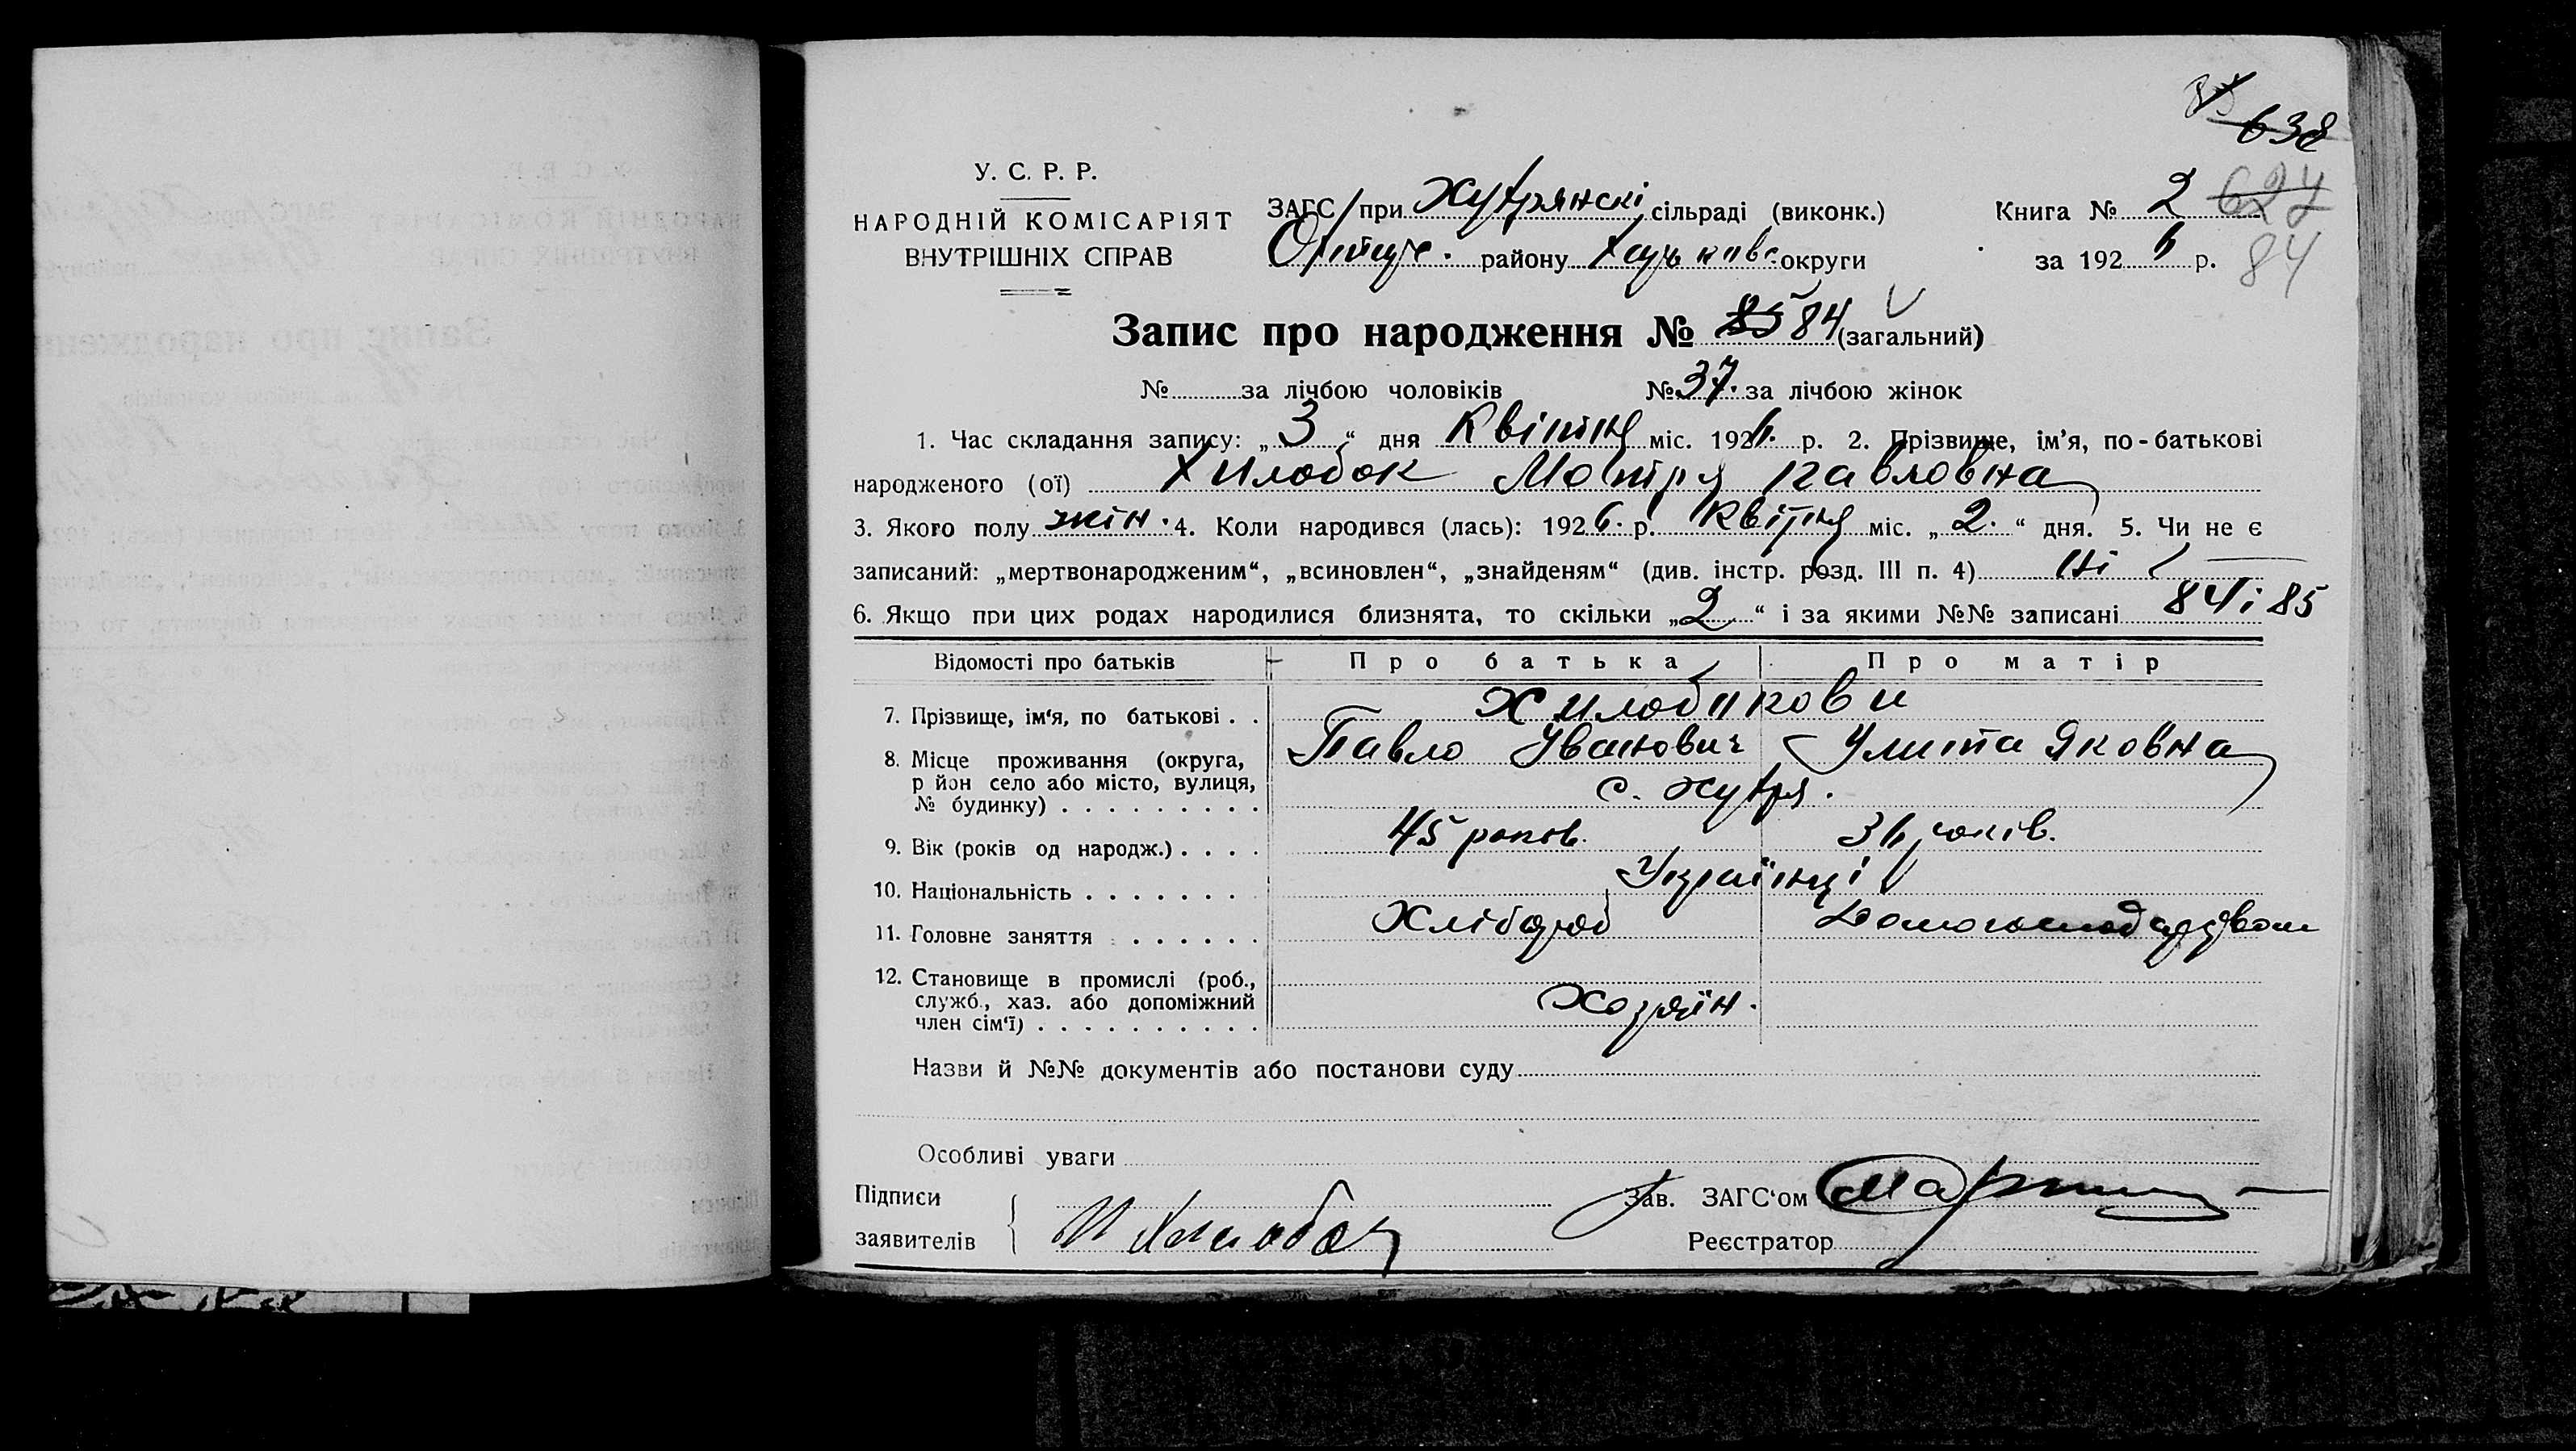 638
У. С. Р. Р.
НАРОДНІЙ КОМІСАРІЯТ
ВНУТРІШНІХ СПРАВ
ЗАГС / при Хутрянскі сільраді (виконк.)
району Харьківс. округи
Книга № 2 627
за 192 6 р. 84
Запис про народження № 85 84 (загальний)
№ за лічбою чоловіків № 37. за лічбою жінок
1. Час складання запису: „ 3 “ дня Квітня міс. 192 6. р. 2. Прізвище, ім'я, по-батькові
народженого (ої) Хилобок Мотря Павловна
3. Якого полу жін. 4. Коли народився (лась): 192 6. р. Квітня міс. „ 2. “ дня. 5. Чи не є
записаний: „мертвонародженим“, „всиновлен“, „знайденям“ (див. інстр. розд. III п. 4) Ні
6. Якщо при цих родах народилися близнята, то скільки „ 2 “ і за якими №№ записані 84 і 85
Відомості про батьків Про батька Про матір
7. Прізвище, ім'я, по батькові . . Хилобокови
Павло Іванович Улита Яковна
8. Місце проживання (округа,
р йон село або місто, вулиця,
№ будинку) . . . . . . . . . с. Хутря.
9. Вік (років од народж.) . . . . 45 роков. 36 років.
10. Національність . . . . . . . Українці
11. Головне заняття . . . . . . Хлібороб
12. Становище в промислі (роб.,
служб., хаз. або допоміжний
член сім'ї) . . . . . . . . . . Хозяїн.
Назви й №№ документів або постанови суду
Особливі уваги
Підписи
заявителів П Хилобок
Зав. ЗАГС'ом
Реєстратор